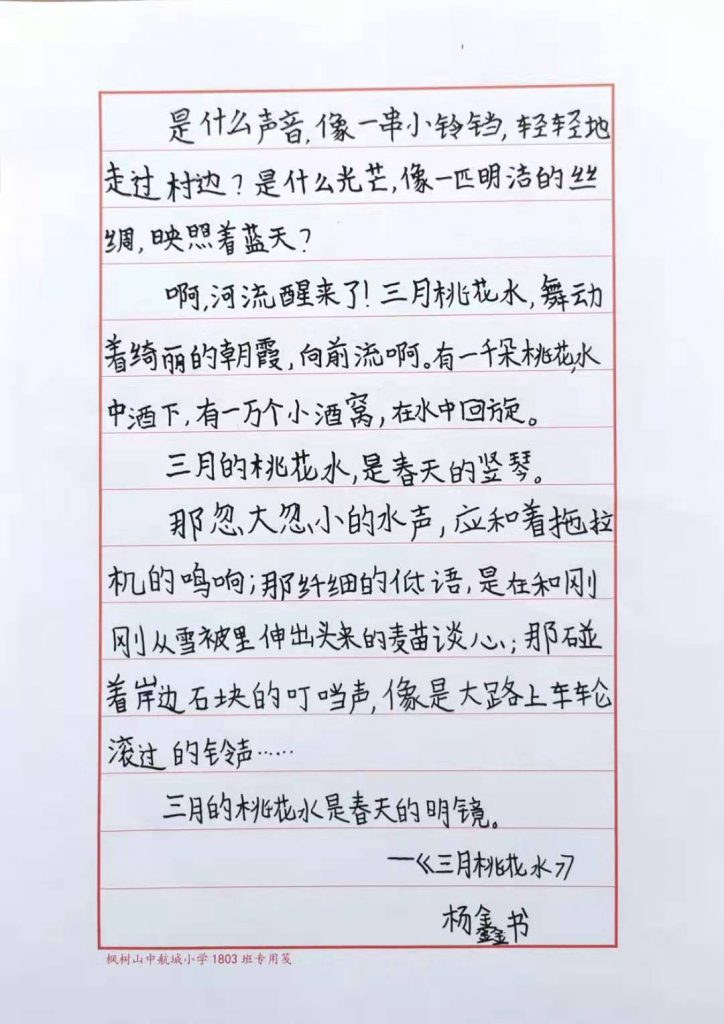 是什么声音,像一串小铃铛,轻轻地
走过村边?是什么光芒,像一匹明洁的丝
绸,映照着蓝天?
啊,河流醒来了!三月桃花水,舞动
着绮丽的朝霞,向前流啊。有一千朵桃花,水
中洒下,有一万个小酒窝,在水中回旋。
三月的桃花水,是春天的竖琴。
那忽大忽小的水声,应和着拖拉
机的鸣响;那纤细的低语,是在和刚
刚从雪被里伸出头来的麦苗谈心;那碰
着岸边石块的叮当声,像是大路上车轮
滚过的铃声……
三月的桃花水是春天的明镜。
—《三月桃花水》
杨鑫书
枫树山中航城小学1803班专用笺